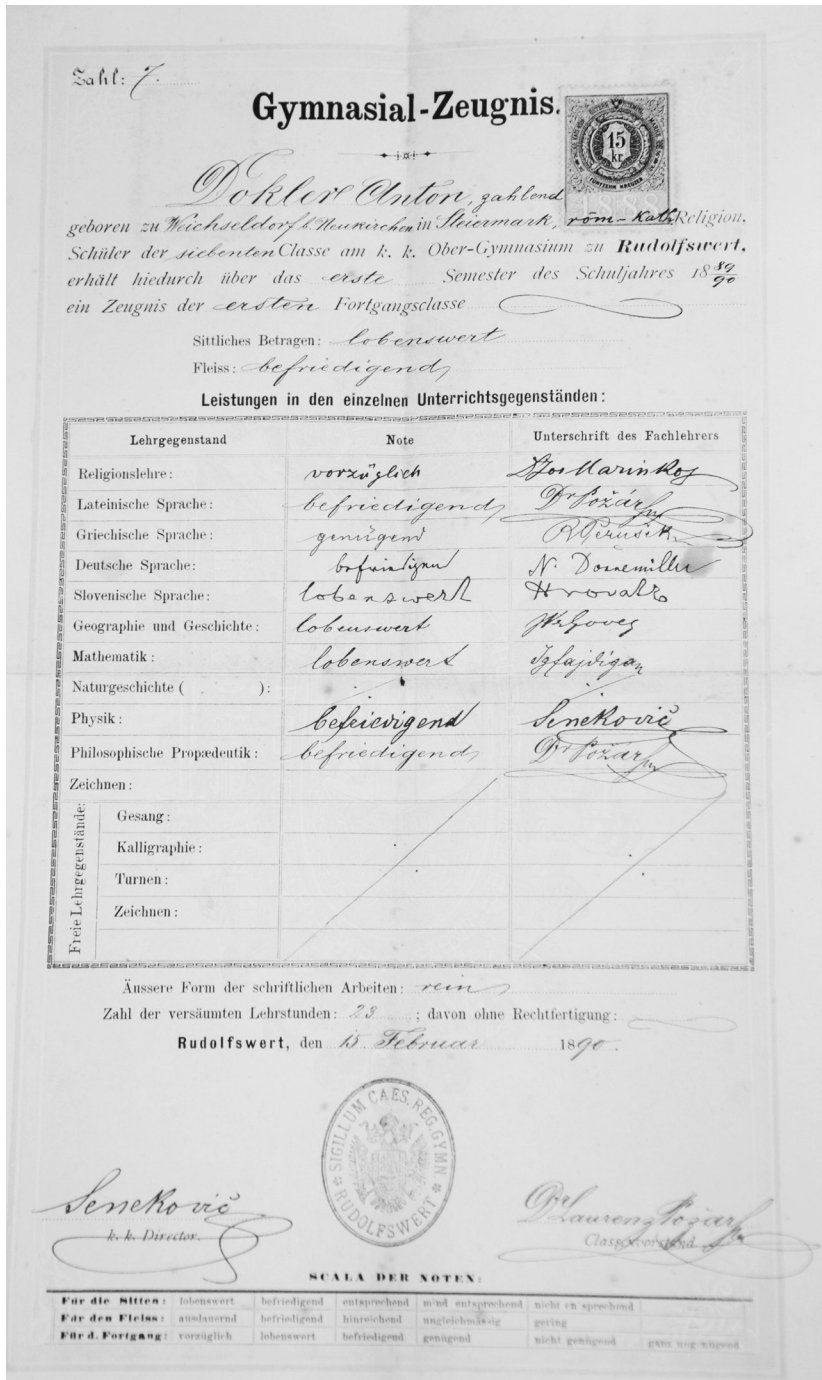 Zahl: 7.
Gymnasial-Zeugnis.
15 kr.
FÜNFZEHN KREUZER
1888
Dokler Anton, zahlend
geboren zu Weichseldorf b. Neukirchen in Steiermark, röm-kath. Religion,
Schüler der siebenten Classe am k. k. Ober-Gymnasium zu Rudolfswert,
erhält hiedurch über das erste Semester des Schuljahres 18 89/90
ein Zeugnis der ersten Fortgangsclasse
Sittliches Betragen: lobenswert
Fleiss: befriedigend
Leistungen in den einzelnen Unterrichtsgegenständen:
Lehrgegenstand Note Unterschrift des Fachlehrers
Religionslehre: vorzüglich Marinko
Lateinische Sprache: befriedigend Dr Požár
Griechische Sprache: genügend R Perušek
Deutsche Sprache: befriedigend N. Donnemiller
Slovenische Sprache: lobenswert Hrovat
Geographie und Geschichte: lobenswert
Mathematik: lobenswert Ig Fajdiga
Naturgeschichte ( ):
Physik: befriedigend Senekovič
Philosophische Propædeutik: befriedigend Dr Požár
Zeichnen:
Freie Lehrgegenstände:
Gesang:
Kalligraphie:
Turnen:
Zeichnen:
Äussere Form der schriftlichen Arbeiten: rein
Zahl der versäumten Lehrstunden: 23 ; davon ohne Rechtfertigung:
Rudolfswert, den 15. Februar 1890.
SIGILLUM CAES. REG. GYMN
RUDOLFSWERT
Senekovič
k. k. Director.
Dr Laurenz Požar
Classenvorstand.
SCALA DER NOTEN:
Für die Sitten: lobenswert befriedigend entsprechend mind entsprechend nicht en sprechend
Für den Fleiss: ausdauernd befriedigend hinreichend ungleichmässig gering
Für d. Fortgang: vorzüglich lobenswert befriedigend genügend nicht genügend ganz ung nügend